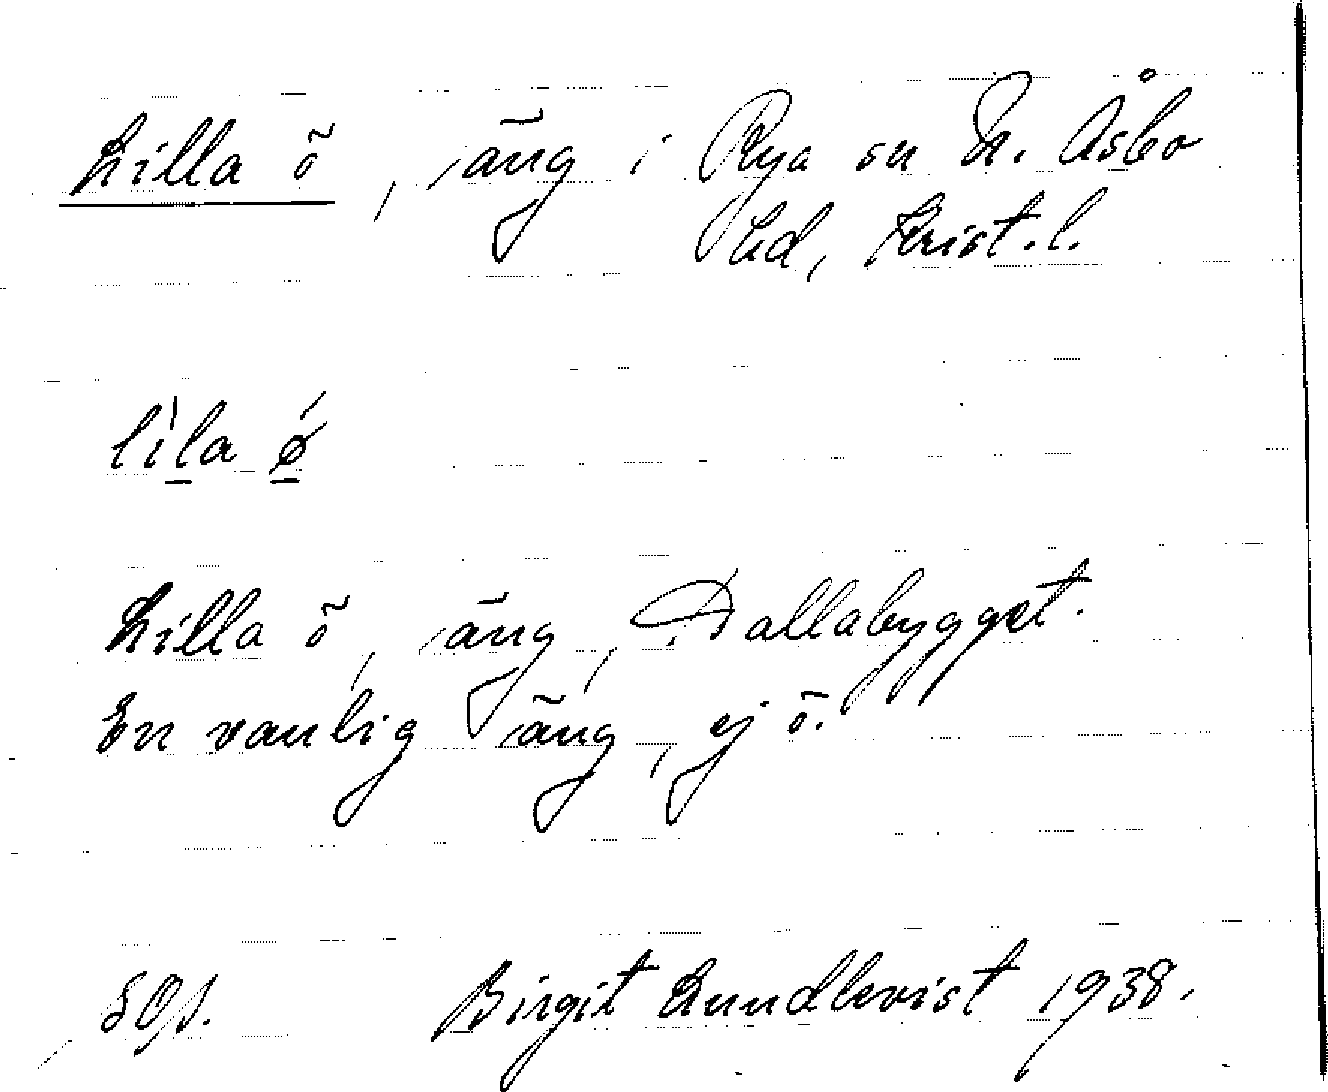 Lilla ö, äng i Rya sn N. Åsbo
hd, Krist. l.
lìla ǿ
Lilla ö, äng, Dallabygget.
En vanlig äng, ej ö.
SOA.
Birgit Lundkvist 1938.